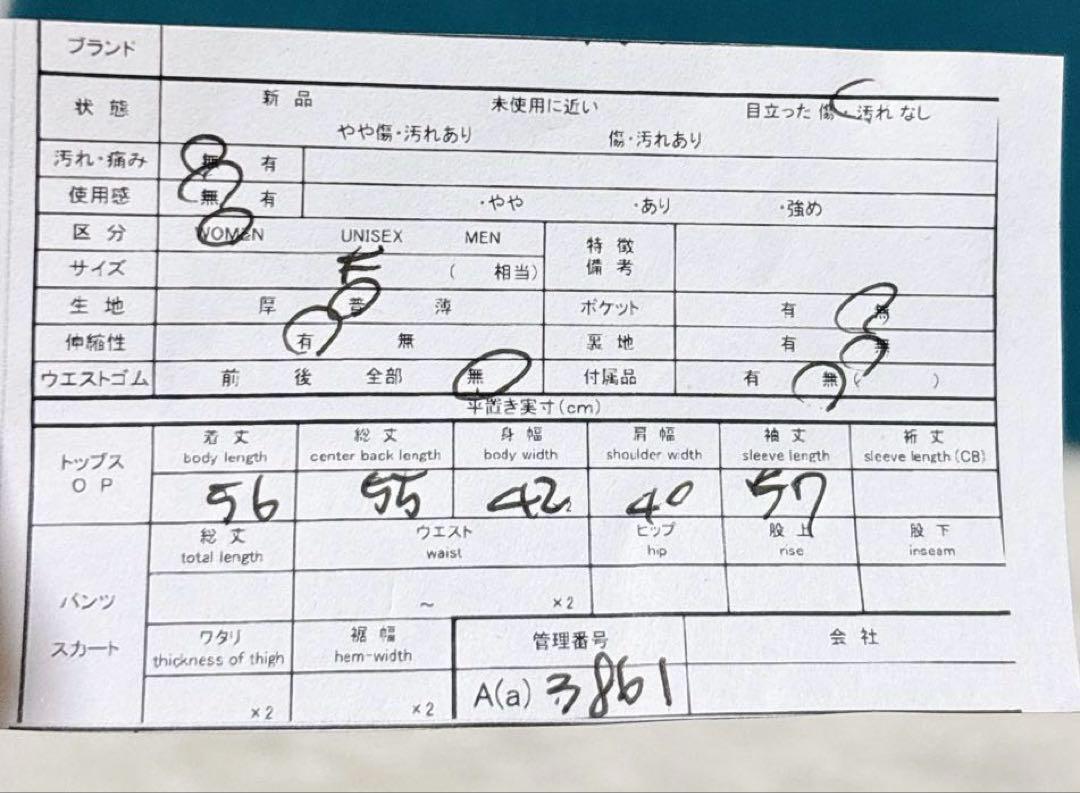 ブランド
状態 新品 未使用に近い 目立った傷・汚れなし
やや傷・汚れあり 傷・汚れあり
汚れ・痛み 無 有
使用感 無 有 ・やや ・あり ・強め
区分 WOMEN UNISEX MEN 特徴
サイズ ( 相当) 備考
生地 厚 普 薄 ポケット 有 無
伸縮性 有 無 裏地 有 無
ウエストゴム 前 後 全部 無 付属品 有 無 ( )
平置き実寸(cm)
トップス 着丈 総丈 身幅 肩幅 袖丈 裄丈
OP body length center back length body width shoulder width sleeve length sleeve length(CB)
56 55 42 40 57
総丈 ウエスト ヒップ 股上 股下
total length waist hip rise inseam
パンツ ~ ×2
スカート ワタリ 裾幅 管理番号 会社
thickness of thigh hem-width
×2 ×2 A(a) 3861